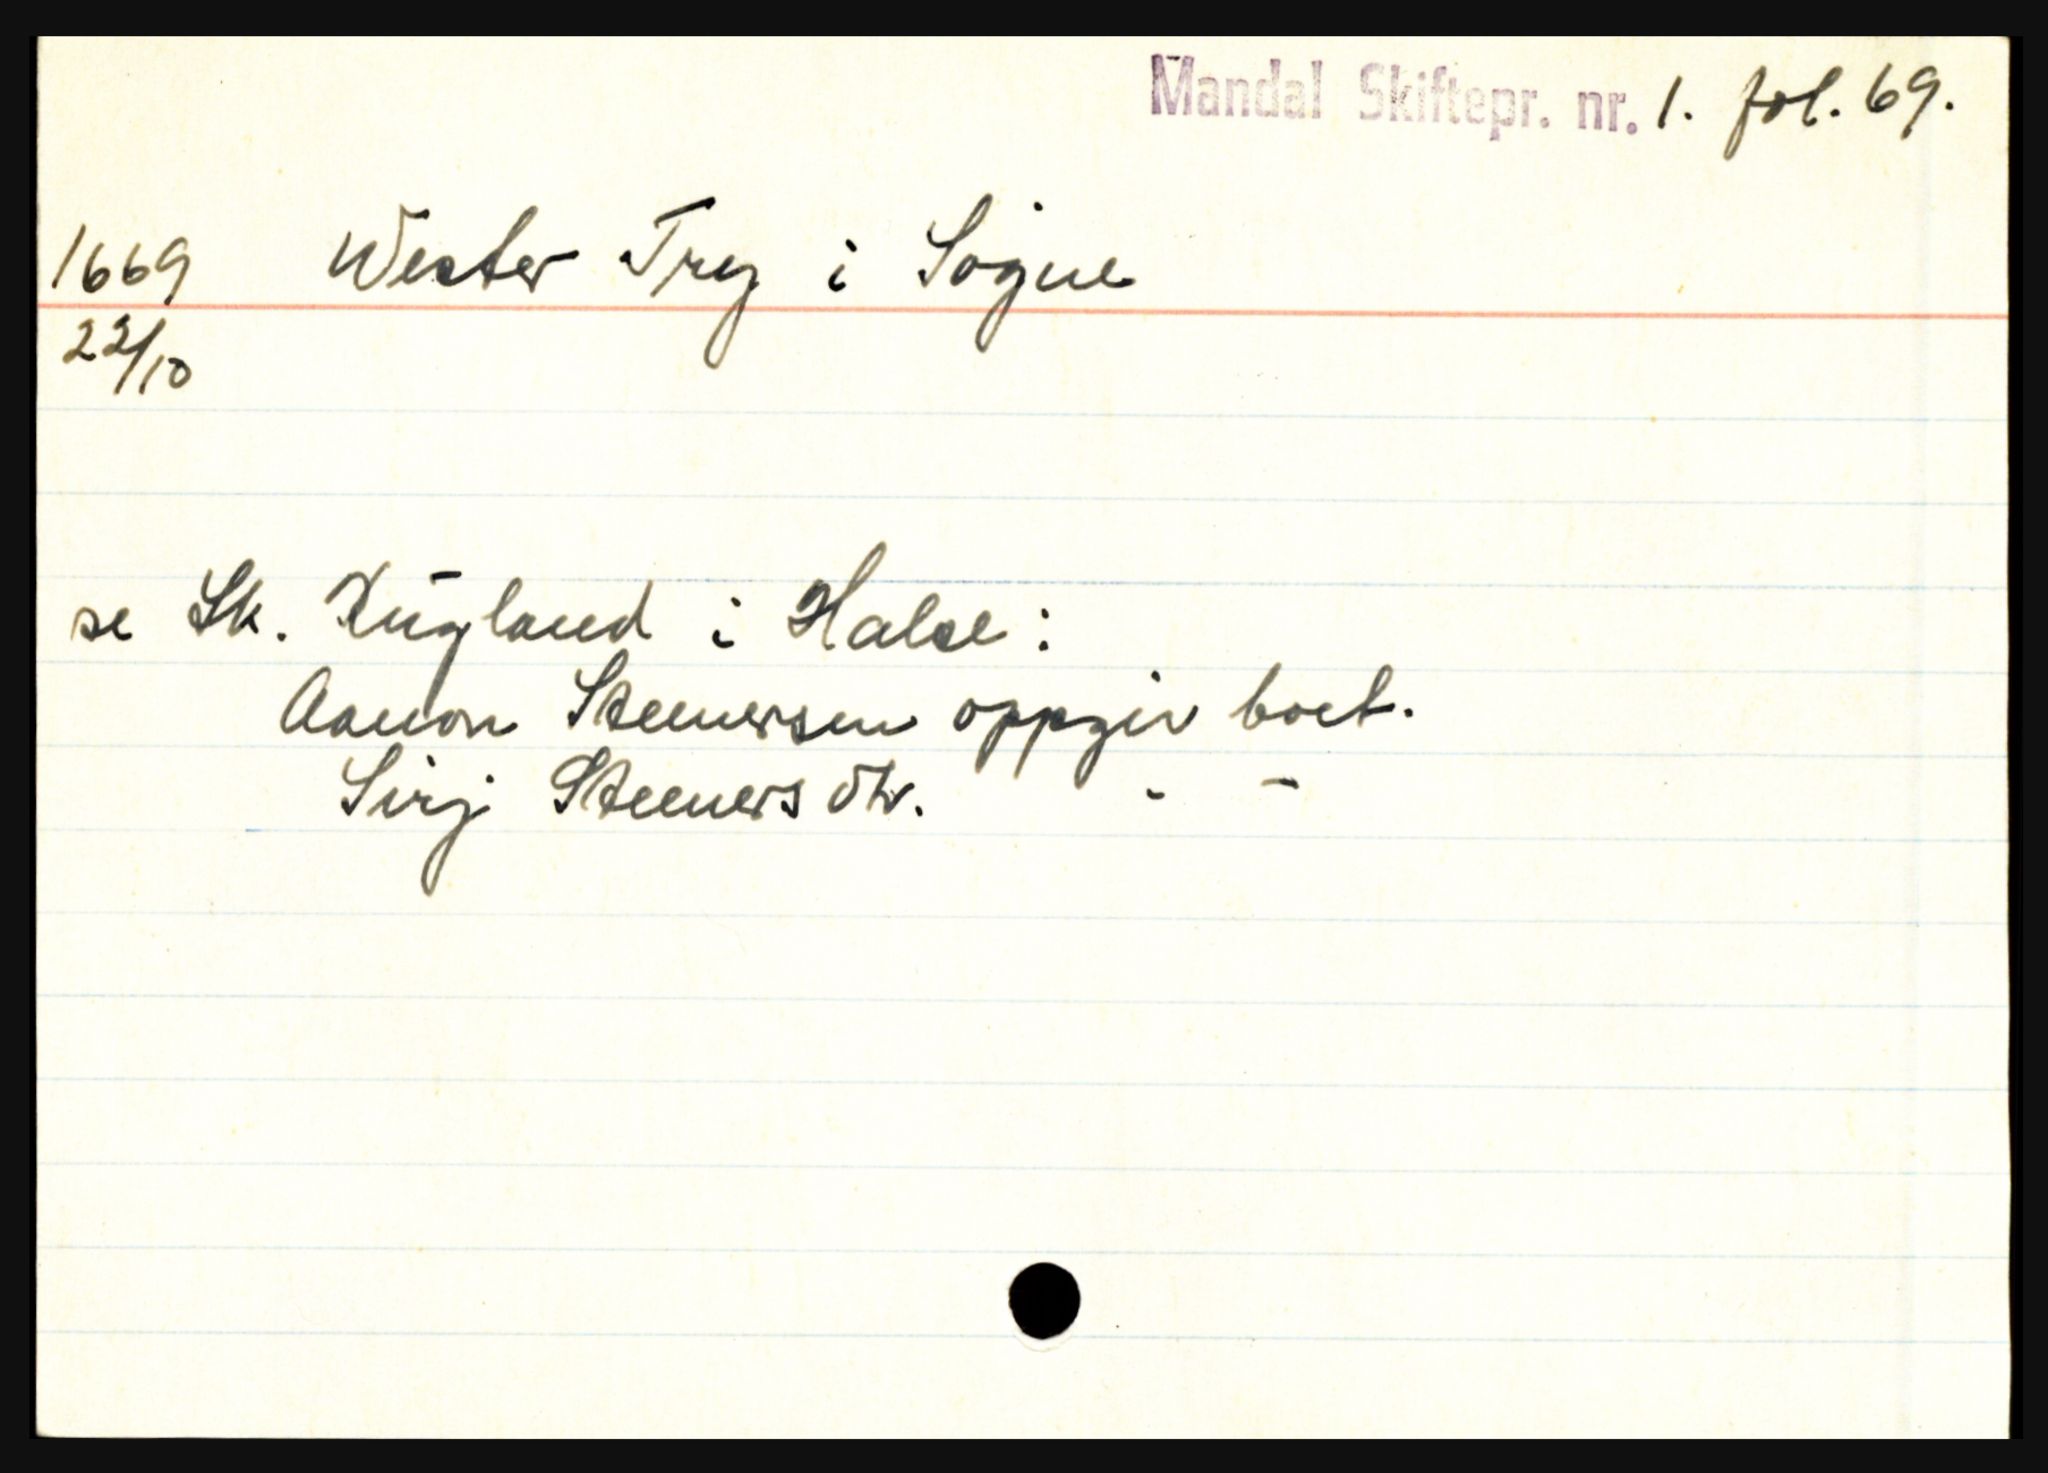 Mandal Skiftepr. nr. 1. fol. 69.
1669 Wester Try i Sogne
22/10
se Sk. Kügland i Halse:
Aanon Steenersen oppgir boet.
Sirj Steenersdtr. - -